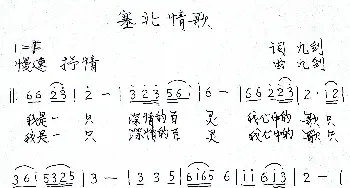 塞北情歌
1=F 词 九剑
慢速 抒情 曲 九剑
‖: 6 6 2 3 | 2 - | 3 2 3 5 6 | 6 - | 6 6 2 2 3 | 2 · 1 2 |
我是一 只 深情的百 灵 我心中的 歌只
我是一 只 深情的百 灵 我心中的 歌只
3 6 1 5 3 2 5 | 3 - | 3 3 5 | 6 1 6 5 6 | 1 1 6 1 3 | 2 - |